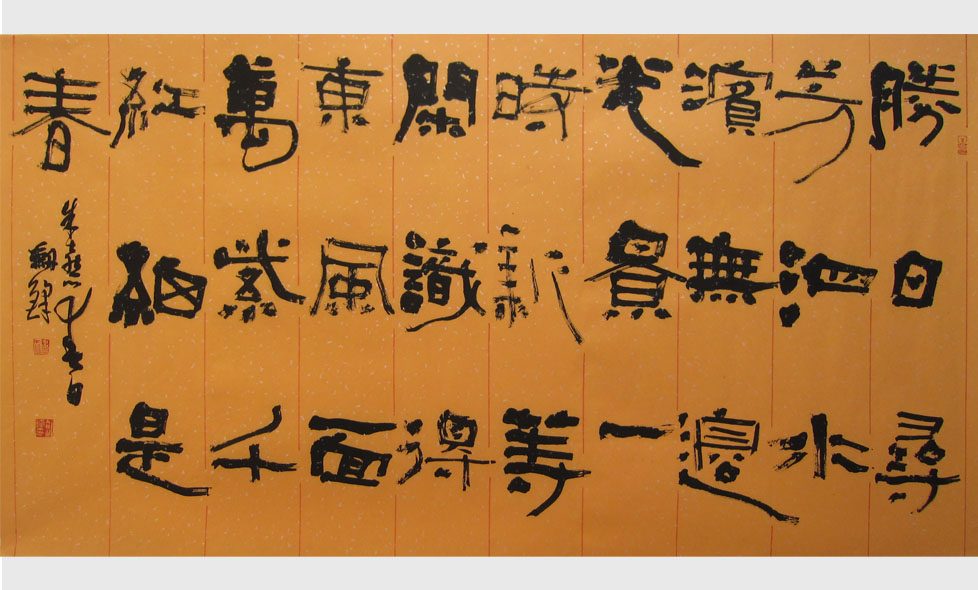 勝日尋
芳泗水
濱無邊
光景一
時新等
閑識得
東風面
萬紫千
紅總是
春
朱熹春日